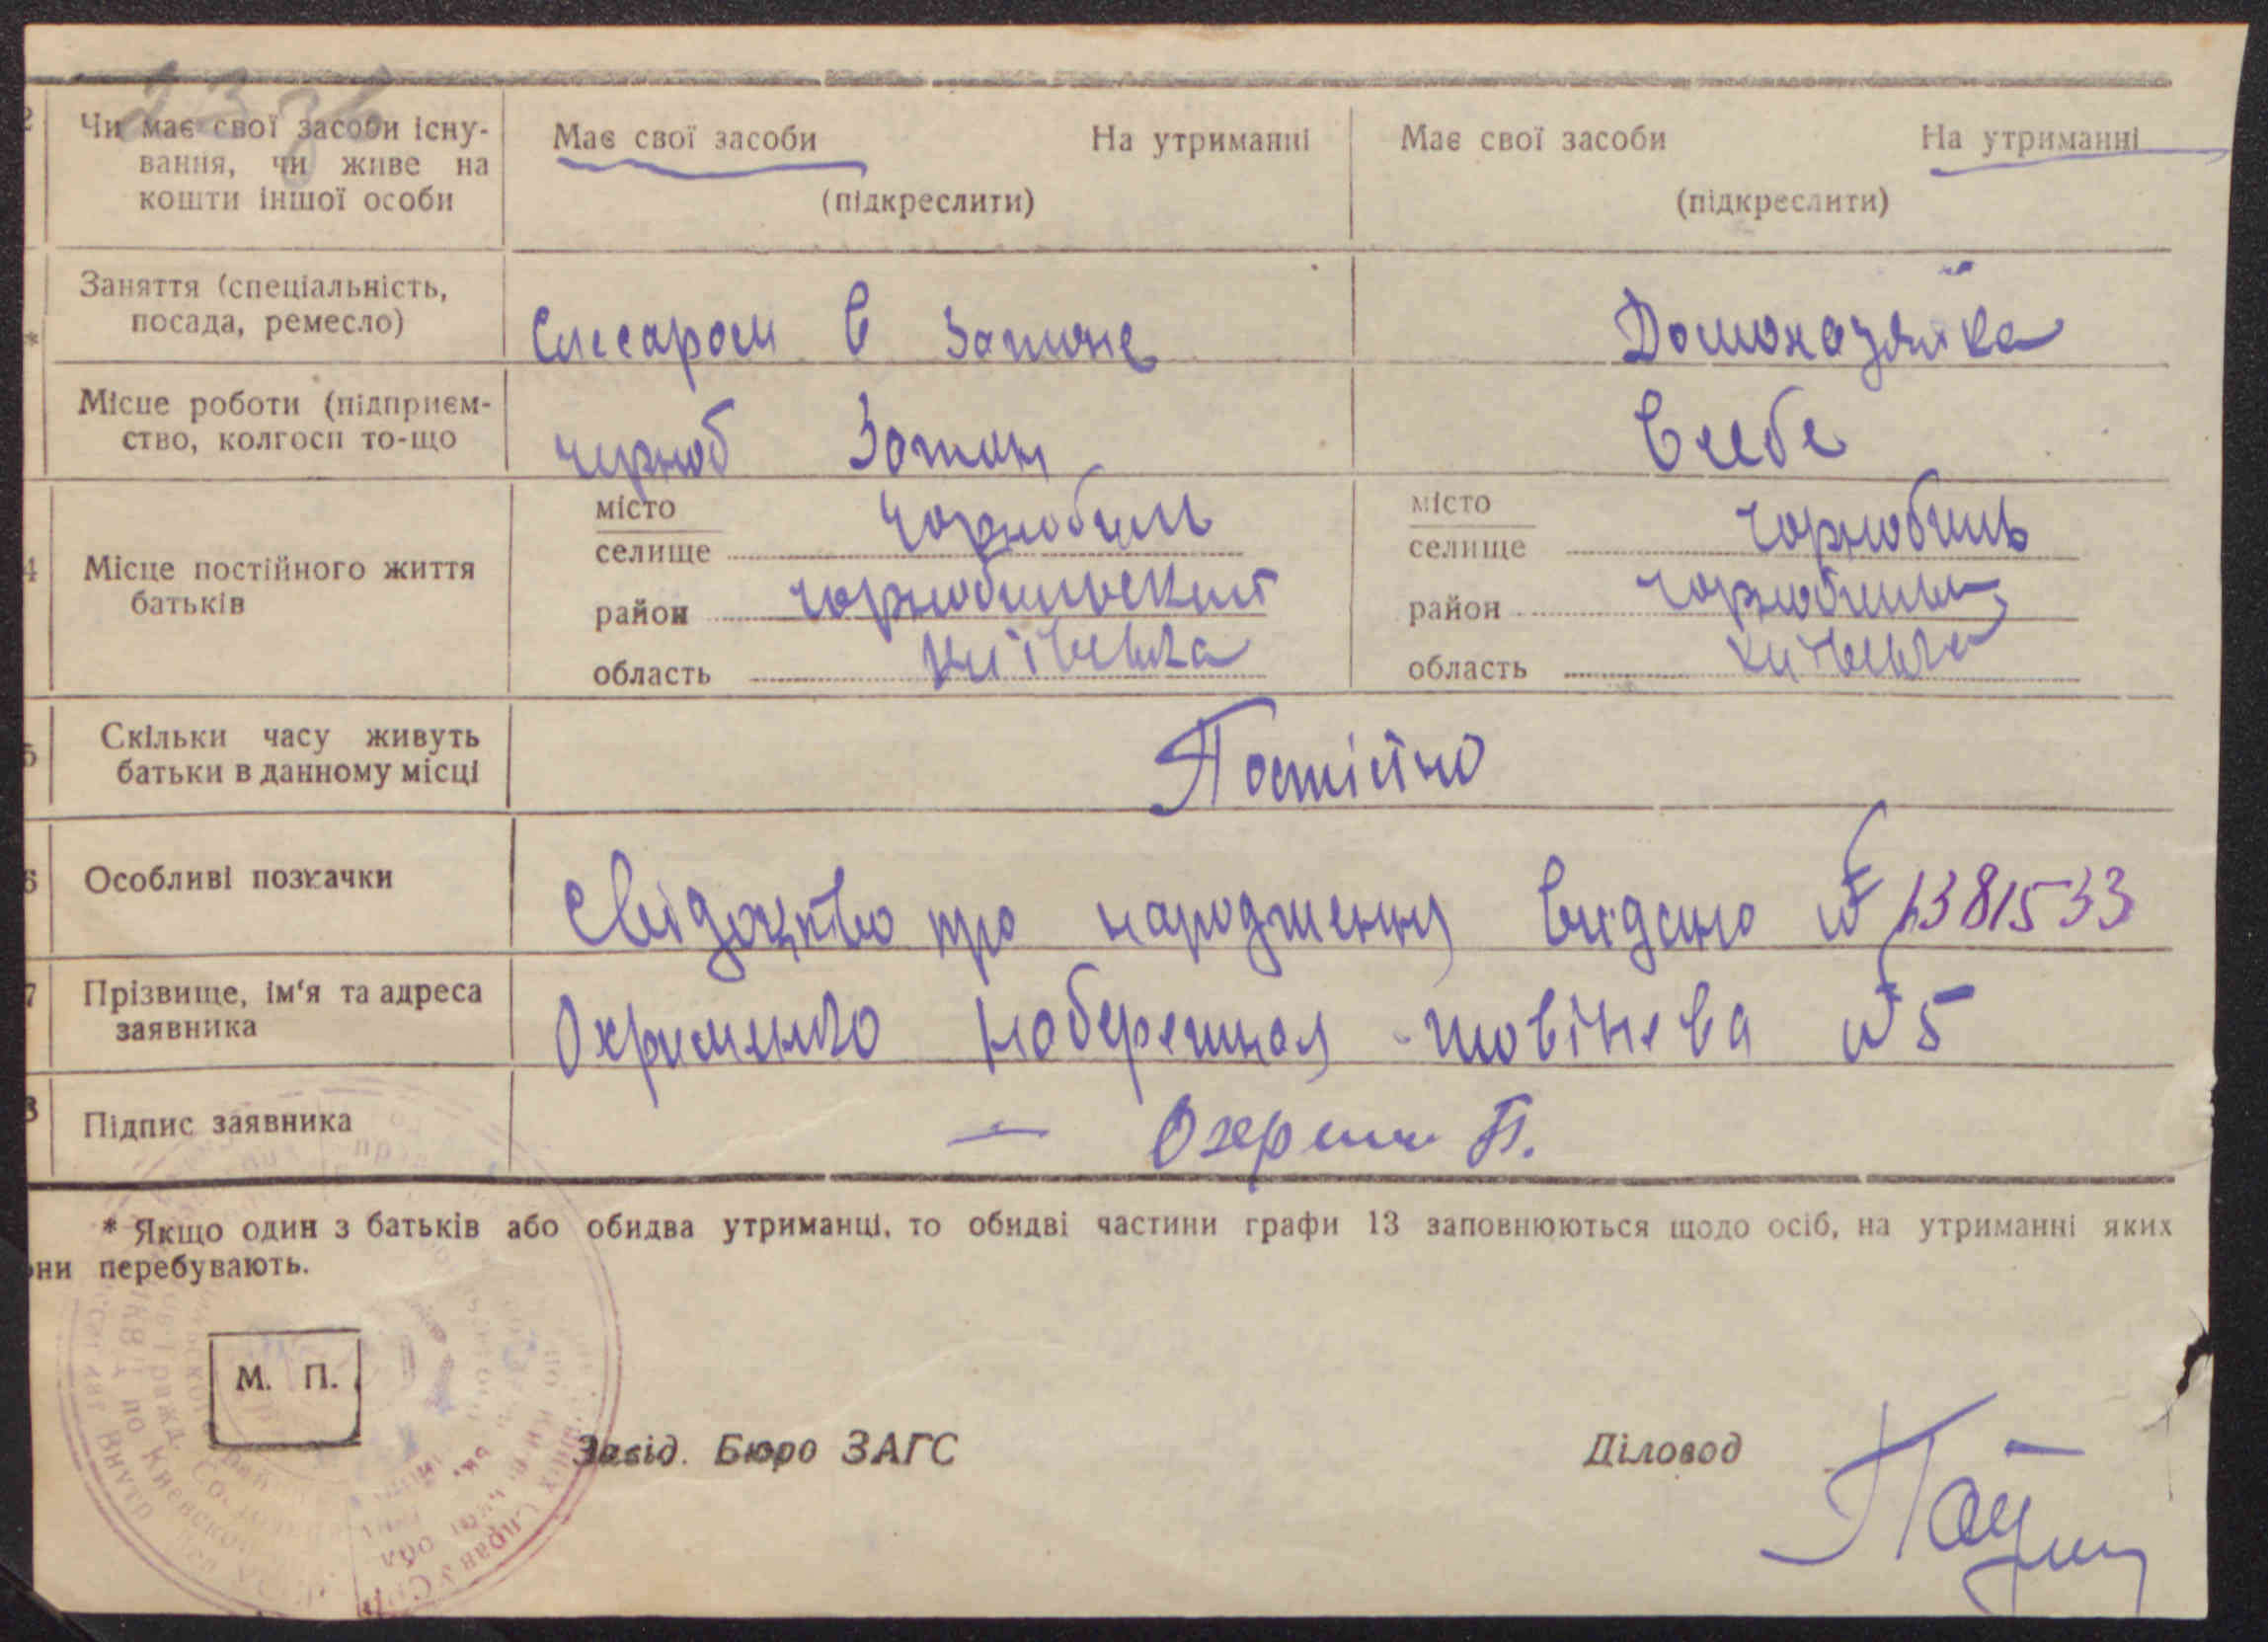 2
Чи має свої засоби існу-
вання, чи живе на
кошти іншої особи
Має свої засоби На утриманні
(підкреслити)
Має свої засоби На утриманні
(підкреслити)
Заняття (спеціальність,
посада, ремесло)
*
Слесаром в Затоне
Домохазяйка
Місце роботи (підприєм-
ство, колгосп то-що
черноб Затон
В себе
4
Місце постійного життя
батьків
місто
селище Чорнобиль
район Чорнобильский
область Київська
місто
селище Чорнобиль
район
область Київська
5
Скільки часу живуть
батьки в данному місці
Постійно
6
Особливі позначки
Свідоцтво про народження видано № 1381533
7
Прізвище, ім'я та адреса
заявника
Охрименко Набережная № 5
8
Підпис заявника
* Якщо один з батьків або обидва утриманці, то обидві частини графи 13 заповнюються щодо осіб, на утриманні яких
они перебувають.
М. П.
Завід. Бюро ЗАГС
Діловод